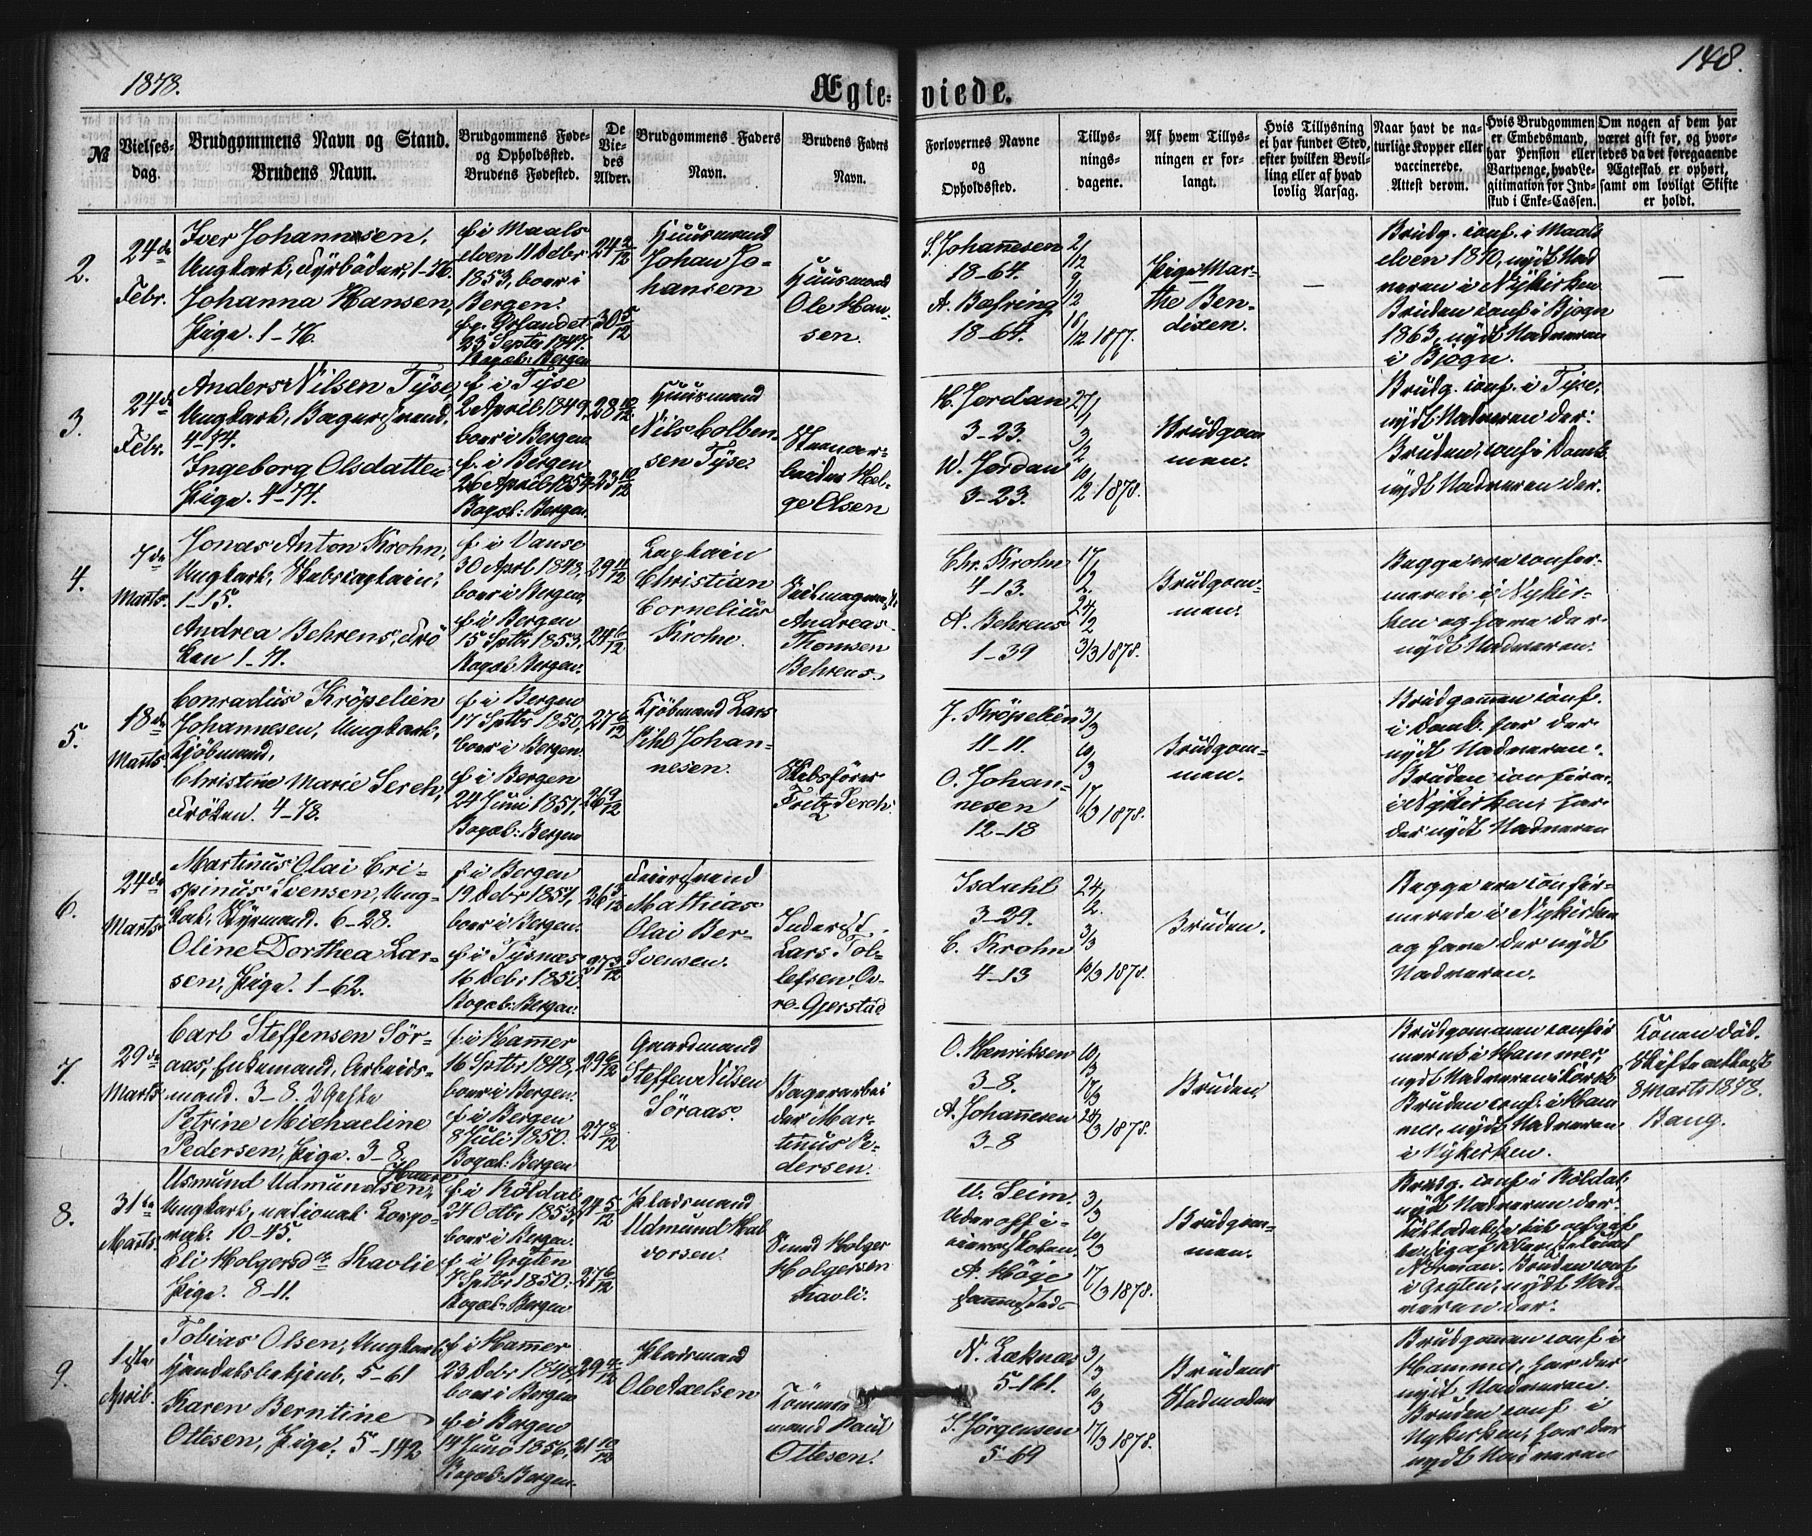 1878.
Ægte-viede.
148.
№
Vielses-
dag.
Brudgommens Navn og Stand.
Brudens Navn.
Brudgommens Føde-
og Opholdsted.
Brudens Fødested.
De
Vie-
des
Alder.
Brudgommens Faders
Navn.
Brudens Faders
Navn.
Forlovernes Navne
og
Opholdsted.
Tillys-
nings-
dagene.
Af hvem Tillys-
ningen er for-
langt.
Hvis Tillysning
ei har fundet Sted,
efter hvilken Bevil-
ling eller af hvad
lovlig Aarsag.
Naar havt de na-
turlige Kopper eller
vaccinerede.
Attest derom.
Hvis Brudgommen
er Embedsmand,
har Pension eller
Vartpenge, hvad Le-
gitimation for Ind-
skud i Enke-Cassen.
Om nogen af dem har
været gift før, og hvor-
ledes da det foregaaende
Ægteskab er ophørt,
samt om lovligt Skifte
er holdt.
2.
24de
Febr.
Iver Johannesen,
Ungkark, Fyrbøder, 1-76.
Johanna Hansen,
Pige. 1-76.
f. i Maals
elven 11 Decbr
1853, boer i
Bergen.
f. i Ørlandet
23 Septr 1847.
Bopæl: Bergen
24 2/12
30 5/12
Huusmand
Johan Jo-
hansen
Huusmand
Ole Han-
sen.
S. Johannesen
18-64.
A. Bæfring
18-64.
2/12
9/12
16/12 1877.
Pige Mar-
the Ben-
dixen.
—
Brudg. conf. i Maals
elven 1870, nydt Nad
veren i Nykirken
Bruden conf. i Bjogn
1863, nydt Nadveren
i Bjogn.
—
3.
24de
Febr.
Anders Nilsen Tyse,
Ungkark, Bagersvend,
4-74.
Ingeborg Olsdatter
Pige. 4-74.
f. i Tyse
2 April 1849,
boer i Bergen
f. i Bergen
26 April 1854
Bopæl: Bergen.
28 10/12
23 10/12
Huusmand
Nils Colben-
sen Tyse.
Steenar-
beider Hel-
ge Olsen
H. Jordan
3-23.
W. Jordan
3-23.
27/1
3/2
10/2 1878.
Brudgom
men.
Brudg. conf. i Tyse,
nydt Nadveren der.
Bruden, conf. i Domk
nydt Nadveren der.
4.
7de
Marts.
Jonas Anton Krohn,
Ungkark, Skibscaptain,
1-15.
Andrea Behrens, Frö
ken 1-71.
f. i Vanse
30 Aprl 1848,
boer i Bergen,
f. i Bergen
15 Septr 1853,
Bopæl Bergen.
29 11/12
24 6/12
Captain
Christian
Cornelius
Krohn.
Seilmager
Andreas
Thomsen
Behrens.
Chr. Krohn
4-13.
A. Behrens
1-39
17/2
24/2
3/3 1878.
Brudgom-
men.
Begge ere confir-
merede i Nykir-
ken og have der
nydt Nadveren.
5.
18de
Marts.
Conradius Kröpelien
Johannesen, Ungkark,
Kjöbmand,
Christine Marie Lerch,
Fröken. 4-78.
f. i Bergen
17 Septr 1850,
boer i Bergen.
f. i Bergen
24 Juni 1851,
Bopæl: Bergen
27 6/12
26 9/12
Kjöbmand Lars
Pihl Johan-
nesen.
Skibsfører
Fritz Lerch.
J. Kröpelien
11-11.
O. Johan-
nesen
12-18
3/3
10/3
17/3 1878.
Brudgom-
men.
Brudgommen conf.
i Domk. har der
nydt Nadveren.
Bruden confirm.
i Nykirken, har
der nydt Nadveren
6.
24de
Marts
Martinus Olai Cri-
spinus Svensen, Ung-
kark, Styrmand. 6-28.
Oline Dorthea Lar-
sen, Pige. 1-62.
f. i Bergen
19 Decbr 1851,
boer i Bergen.
f. i Tysnæs
16 Decbr 1850
Bopæl: Bergen.
26 3/12
27 3/12
Feiersvend
Mathias
Olai Ber-
Svensen.
Inderst
Lars Tol-
lefsen Öv-
re-Gjerstad
Isdahl
3-29.
C. Krohn
4-13
24/2.
3/3
10/3 1878.
Bruden.
Begge ere confir-
merede i Nykirken
og have der nydt
Nadveren.
7.
29de
Marts
Carl Steffensen Sör-
aas, Enkemand, Arbeids-
mand. 3-8. 2 Gifte
Petrine Michaeline
Pedersen, Pige. 3-8.
f. i Hammer
16 Septr 1848,
boer i Bergen.
f. i Bergen
8 Juli 1850.
Bopæl: Bergen
29 6/12
27 8/12
Gaardmand
Steffen Nilsen
Söraas.
Bagerarbei
der Mar-
tinus Pe-
dersen.
O. Henriksen
3-8.
A. Johannesen
3-8
10/3
17/3
24/3 1878.
Bruden.
Brudgommen confir
meret i Hammer,
nydt Nadveren i Korsk
Bruden conf. i Ham
mer, nydt Nadveren
i Nykirken.
Konen död.
Skifteattest
8 Marts 1878.
Bang.
8.
31te
Marts.
Asmund Admundsen,
Haare
Ungkark, national Corpo-
ral. 10-45.
Eli Holgersdr Skavlie
Pige. 8-11.
f. i Röldal
27 Octbr 1853,
boer i Bergen.
f. i Grytten
7 Septr 1850.
Bopæl: Bergen
24 5/12
27 6/12
Pladsmand
Admund Hal
vorsen.
Smed Holger
Holgersen
Skavli.
A. Seim.
Underoffi-
ceerskolen.
A. Höge
sammestad
3/3
10/3
17/3 1878.
Brudgom-
men.
Brudg. conf. i Röldal
nydt Nadveren der.
Bruden conf
i Grytten, nydt Nad-
veren der.
9.
1ste
April.
Tobias Olsen, Ungkark
Handelsbetjent, 5-61
Karen Berntine
Ottesen, Pige. 5-142
f. i Hammer
23 Decbr 1848,
boer i Bergen
f. i Bergen
14 Juno 1856,
Bopæl: Bergen.
29 4/12
21 10/12
Pladsmand
Ole Axelsen
Tömmer
mand Paul
Ottesen.
N. Læknes
5-161.
J. Jörgensen
5-69
3/3
10/3
17/3 1878.
Brudens
Stedmoder
Brudgommen conf i
Hammer, har der
nydt Nadveren.
Bruden conf i
Nykirken, har der
nydt Nadveren